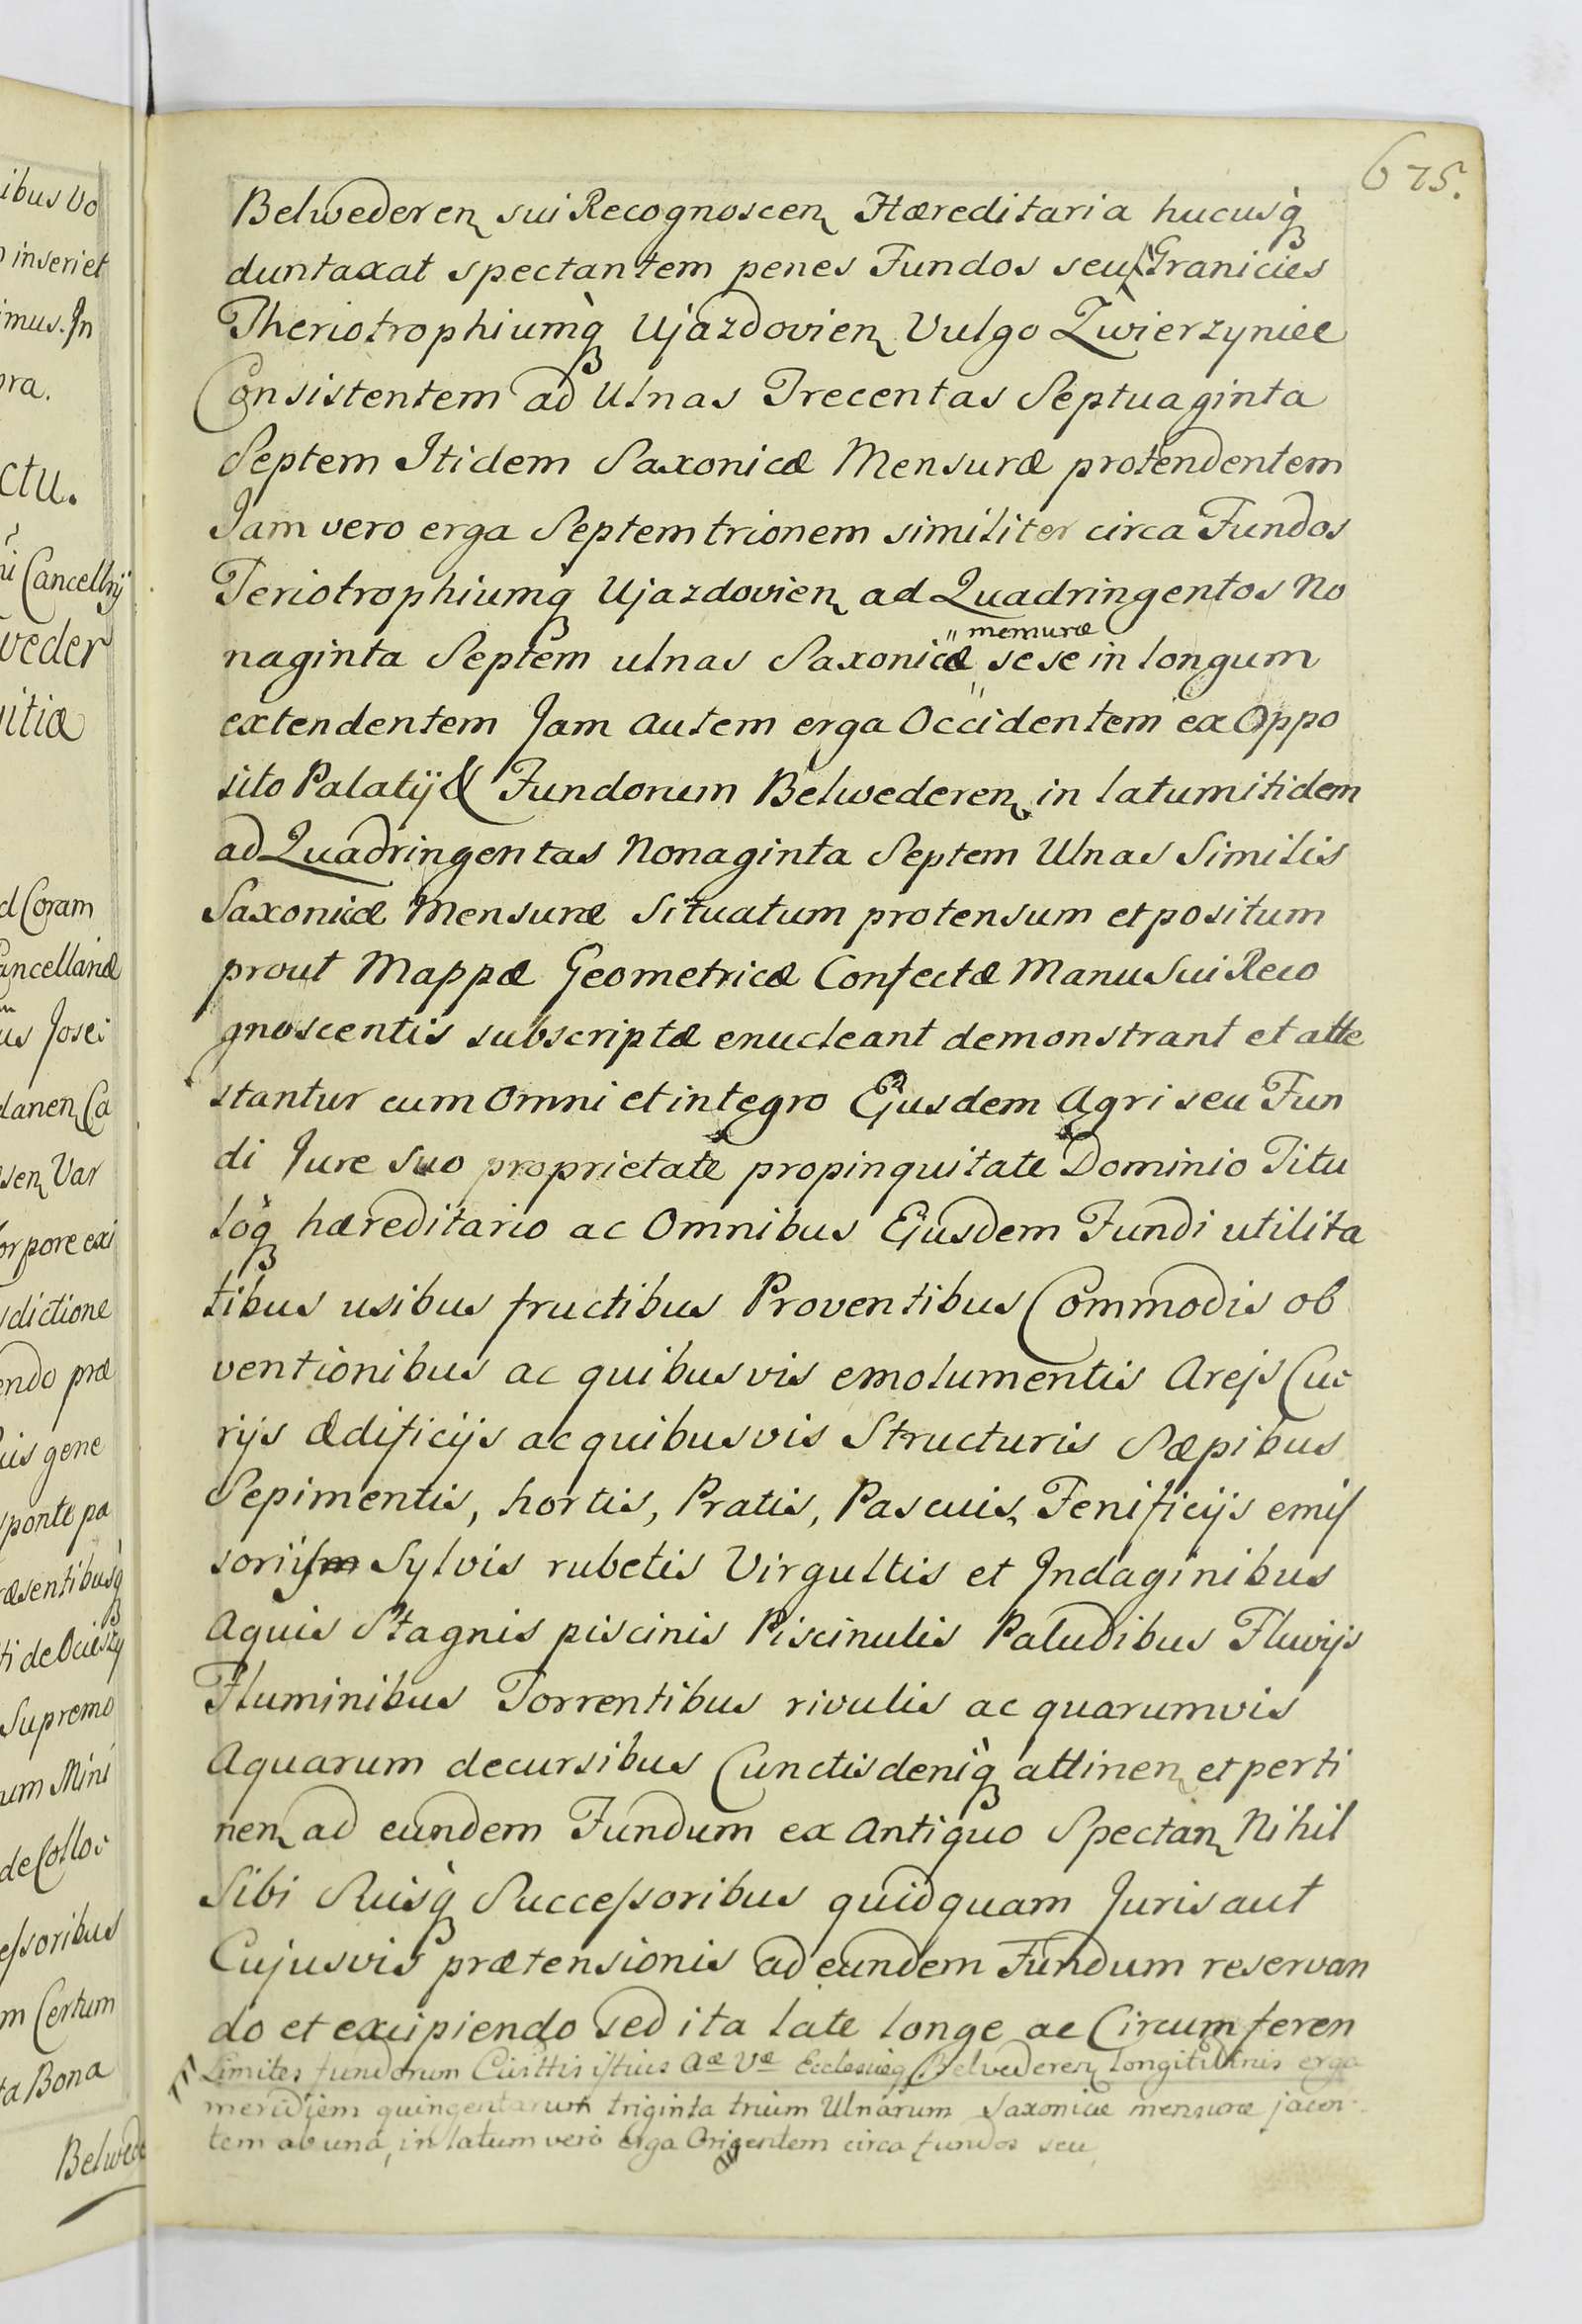 675.
Belwederen sui Recognoscen Hæreditaria hucusq
duntaxat spectantem penes Fundos seu Granicies
Theriotrophiumq Ujazdovien Vulgo Zwierzyniec
Consistentem ad Ulnas Trecentas Septuaginta
Septem Itidem Saxonicæ Mensuræ protendentem
Jam vero erga Septemtrionem similiter circa Fundos
Teriotrophiumq Ujazdovien ad Quadringentos No
mensuræ
naginta Septem ulnas Saxonicæ sese in longum
extendentem Jam autem erga Occidentem ex Oppo
sito Palatij & Fundorum Belwederen in latum itidem
ad Quadringentas Nonaginta Septem Ulnas Similis
Saxonicæ Mensuræ Situatum protensum et positum
prout Mappæ Geometricæ Confectæ Manu Sui Reco
gnoscentis subscriptæ enucleant demonstrant et atte
stantur cum Omni et integro Ejusdem Agri seu Fun
di Jure suo proprietate propinquitate Dominio Titu
loq hæreditario ac Omnibus Ejusdem Fundi utilita
tibus usibus fructibus Proventibus Commodis ob
ventionibus ac quibusvis emolumentis Arejs Cu
rijs ædificijs ac quibusvis Structuris Sæpibus
Sepimentis, hortis, Pratis, Pascuis, Fenificijs emis
sorijs Sylvis rubetis Virgultis et Indaginibus
Aquis Stagnis piscinis Piscinulis Paludibus Fluvijs
Fluminibus Torrentibus rivulis ac quarumvis
Aquarum decursibus Cunctis deniq attinen et perti
nen ad eundem Fundum ex Antiquo Spectan Nihil
Sibi Suisq Successoribus quidquam Juris aut
Cujusvis prætensionis ad eundem Fundum reservan
do et excipiendo sed ita late longe ac Circumferen
Limites fundorum istius Aæ Væ Belvederen longitudinis erga
meridiem quingentarum triginta trium Ulnarum Saxonicæ mensuræ jacen
tem ab una, in latum vero erga Orientem circa fundos seu
ibus Vo
inseri et
imus. In
ora.
ctu.
ni Cancellrij
veder
itiæ
d Coram
ancellariæ
us Josei
danen Ca
sen Var
orpore exi
sdictione
endo præ
uis gene
sponte pa
ræsentibusq
ti de Ociesz
Supremo
um Mini
de Colloc
essoribus
m Certum
ta Bona
Belwede